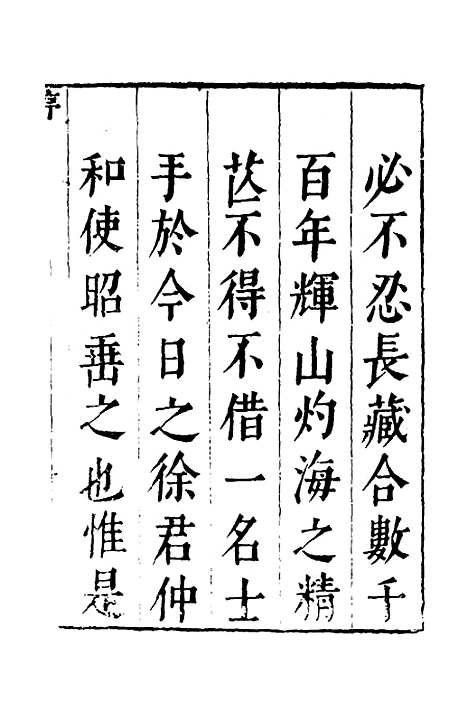 必不忍長藏合數千
百年輝山灼海之精
芒不得不借一名士
手於今日之徐君仲
和使昭垂之也惟是
序